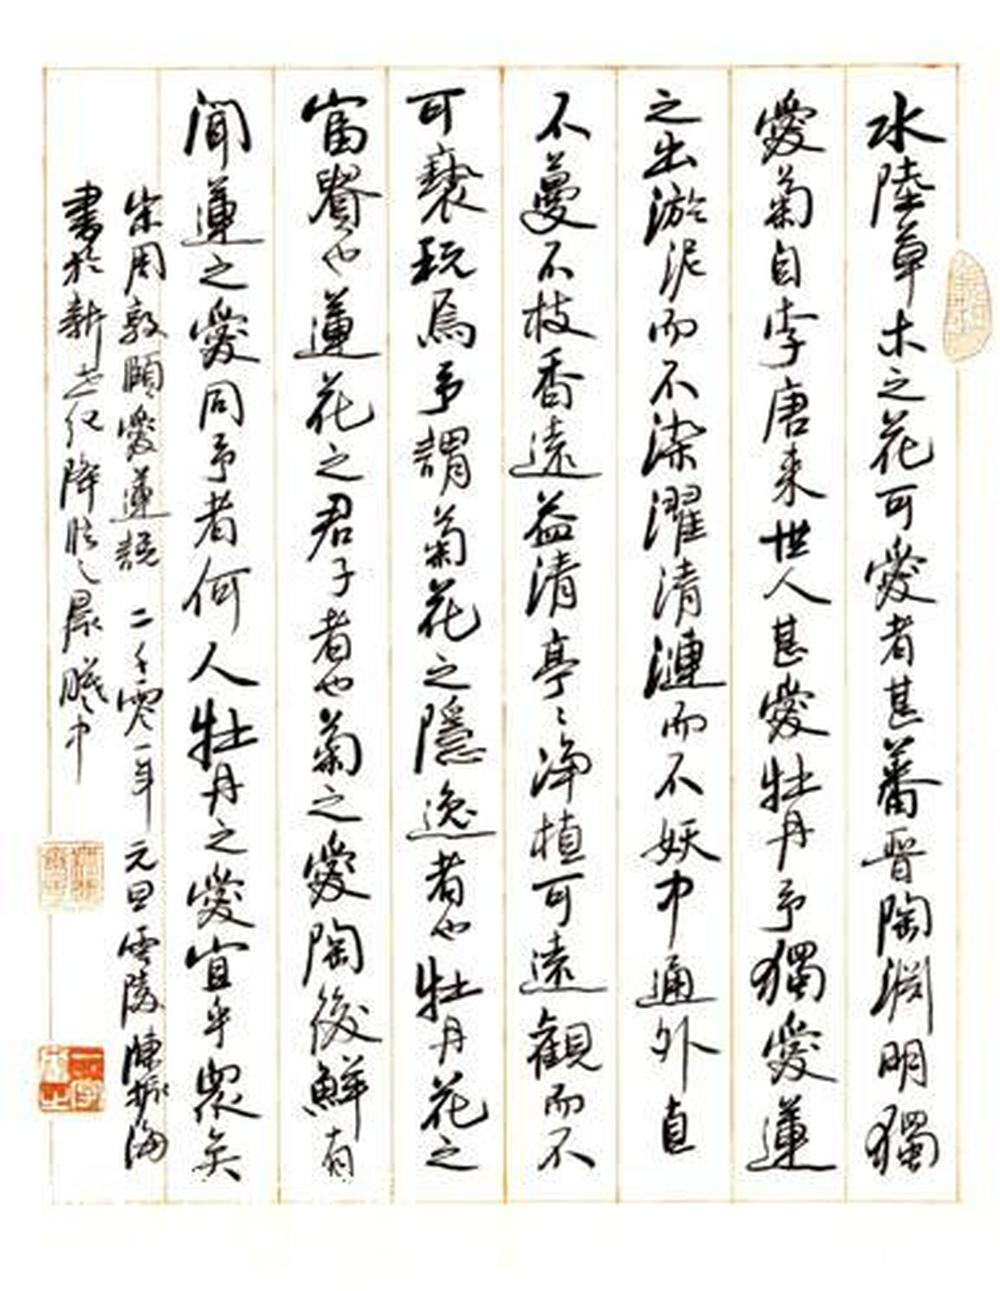 水陸草木之花可愛者甚蕃晉陶渊明獨
愛菊自李唐来世人甚愛牡丹予獨愛蓮
之出淤泥而不染濯清漣而不妖中通外直
不蔓不枝香遠益清亭〻净植可遠觀而不
可褻玩焉予謂菊花之隱逸者也牡丹花之
富貴也蓮花之君子者也菊之愛陶後鮮有
聞蓮之愛同予者何人牡丹之愛宜乎衆矣
宋周敦頤愛蓮説 二千零一年元旦雲陵陳振海
書於新世纪降臨之晨曦中